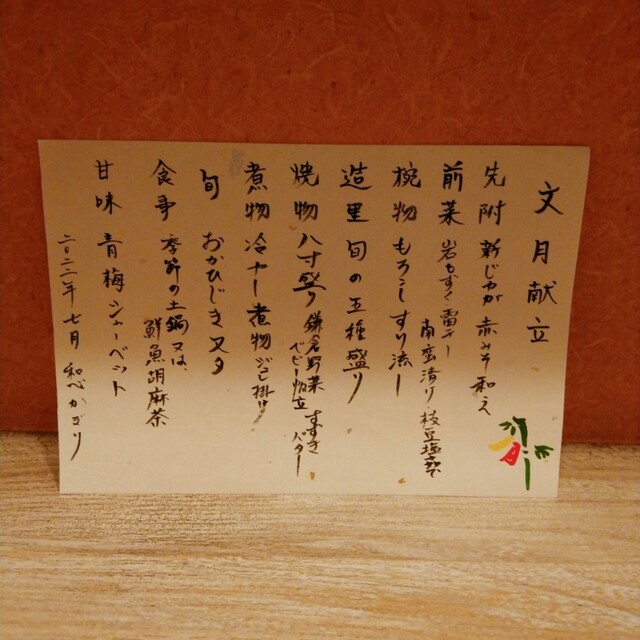 文月献立
先附 新じゃが 赤みそ和え
前菜 岩もずく 雷干し
南蛮漬り 枝豆塩茹で
椀物 もろこしすり流し
造里 旬の五種盛り
焼物 八寸盛り 鎌倉野菜 すずき
ベビー帆立 バター
煮物 冷やし煮物 ジュレ掛け
旬 おかひじき
食事 季節の土鍋 又は、
鮮魚胡麻茶
甘味 青梅シャーベット
二〇二二年七月 和心かぎり